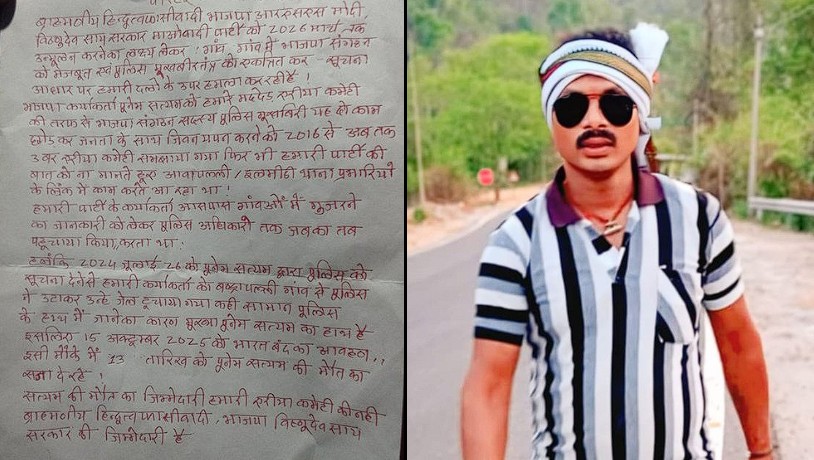 ब्राहमणीय हिन्दुत्वफासीवादी भाजपा आरएसएस मोदी,
विष्णुदेव साय सरकार माओवादी पार्टी को 2026 मार्च तक
उन्मूलन करनेका लक्ष्य लेकर गांव, गांव में भाजपा संगठन
को मजबूत एवं पुलिस मुखबीरतंत्र को एकत्रित कर सूचना
आधार पर हमारी दलों के उपर हमला कर रही है !
भाजपा कार्यकर्ता पूनेम सत्यम को हमारे मददेड एरीया कमेटी
की तरफ से भाजपा संगठन सदस्य पुलिस मुखबिरी यह दो काम
छोड कर जनता के साथ जिवन यापन करने को 2016 से अब तक
3 बार एरीया कमेटी समझाया गया फिर भी हमारी पार्टी की
बात को ना मानते हुए आवापल्ली / इलमीडी थाना प्रभारियों
के लिंक में काम करते आ रहा था !
हमारी पार्टी के कार्यकर्ता आसपास गांवओं में गुजरने
का जानकारी को लेकर पुलिस अधिकारी तक जबका तब
पहूचाया किया, करता था.
हलांकि 2024 जुलाई 26 को पूनेम सत्यम द्वारा पुलिस को
सूचना देनेसे हमारी कार्यकर्ता को गांव से पुलिस
ने उटाकर उन्हे जेल टूचाया गया कही सामान पुलिस
के हाथ में जानेका कारण मुख्य पूनेम सत्यम का हाथ है
इसलिए 15 अक्टूबर 2025 को भारत बंद का आवहान,,
इसी मौके में 13 तारिख को पूनेम सत्यम की मौत का
सजा दे रहे !
सत्यम की मौत का जिम्मेदारी हमारी एरीया कमेटी की नही
ब्राहमणीय हिन्दुत्वफासीवादी, भाजपा विष्णुदेव साय
सरकार की जिम्मेदारी है